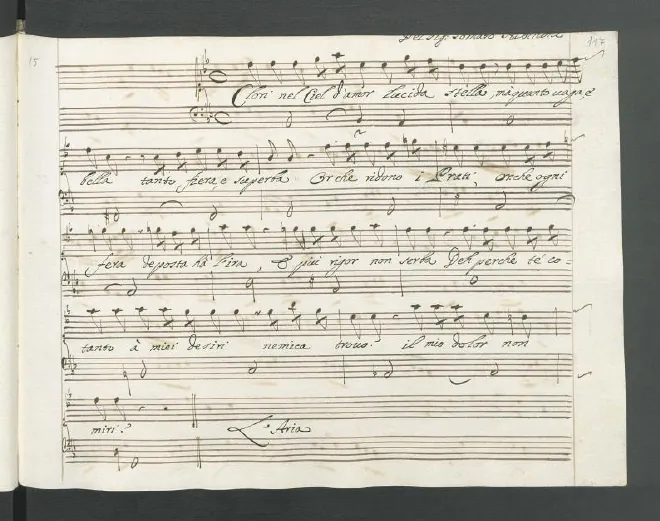 15
Del Sig.r Tomaso
Clori nel Ciel d'amor lucida stella, mà quanto uaga, e
bella tanto fiera, e superba Or che ridono i Prati, or che ogni
fera deposta hà l'ira, E più rigor non serba Deh perche tè co=
tanto à miei desiri nemica trouo? il mio dolor non
miri?
L'Aria